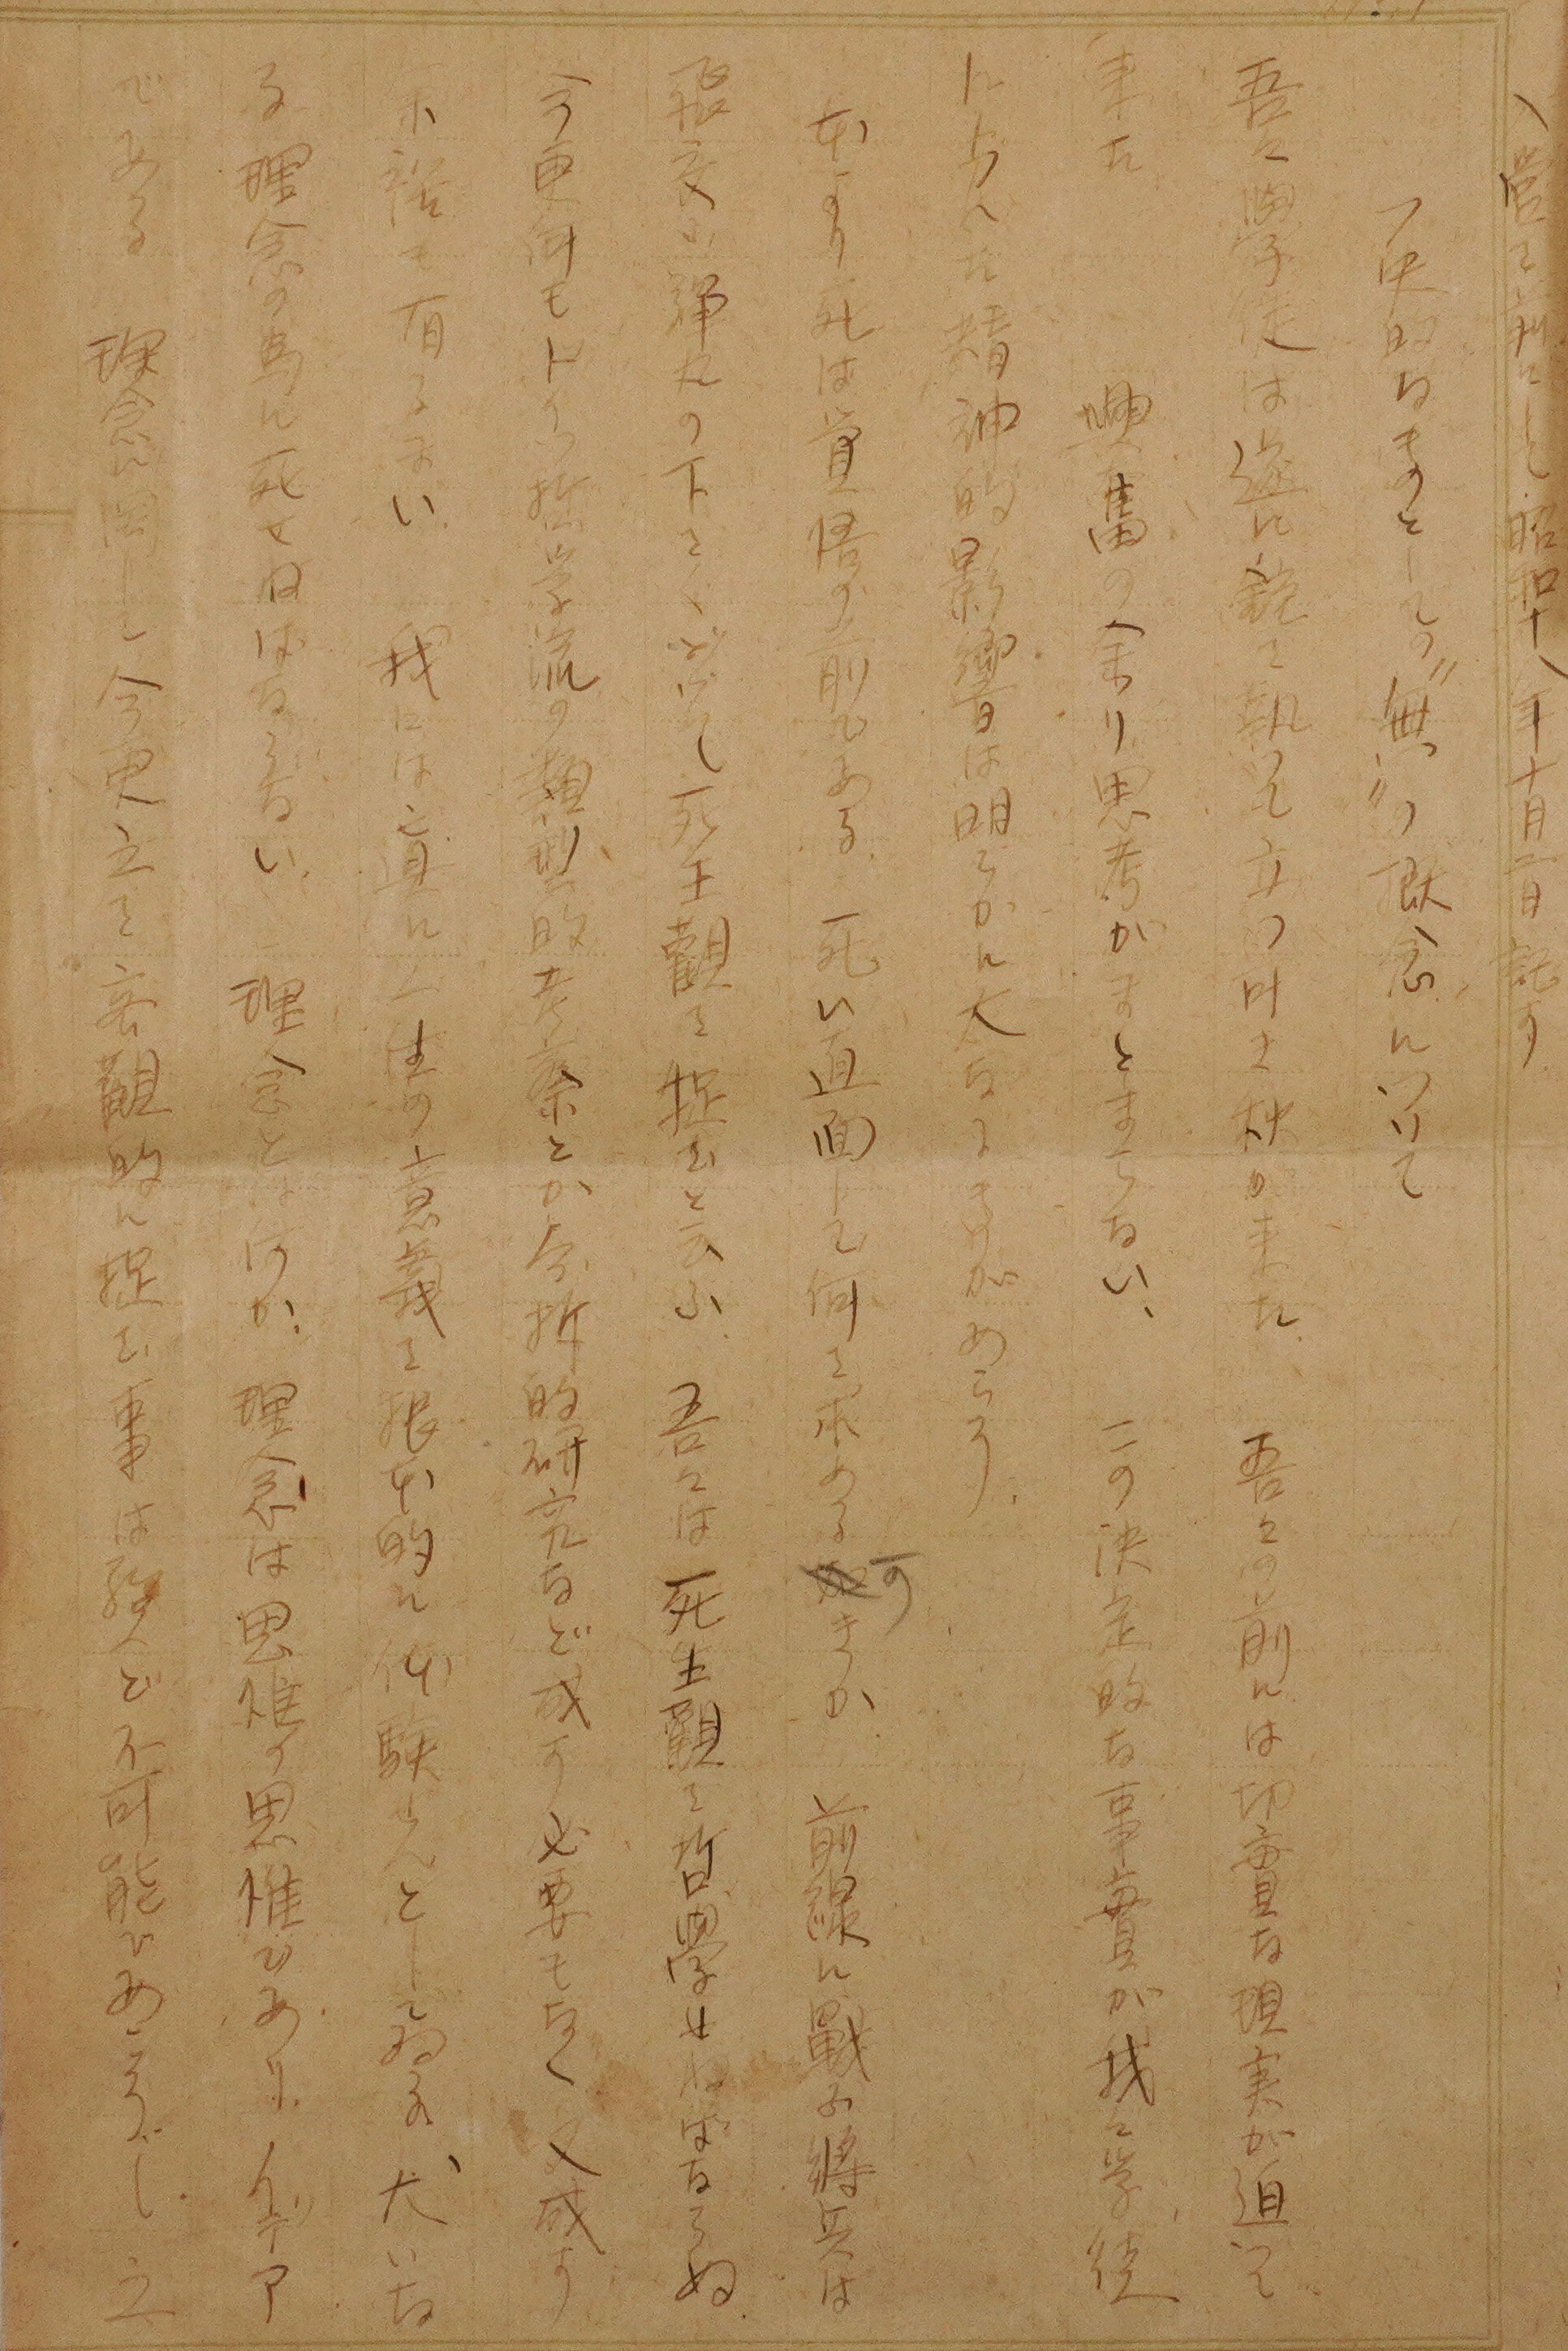 (當て前にして、昭和十八年十月二日 記す)
一決的なものとしての〝無〟の概念について
吾々學徒は遂に銃を執って立つ可き秋が来た。 吾々の前には切實な現実が迫って
来た 興奮の余り思考がまとまらない、 この決定的な事實が我々学徒
に与へた精神的影響は明らかに大なるものがあらう、
もとより死は覚悟の前である、死に直面して何を求める可きか 前線に戰ふ將兵は
飛交ふ弾丸の下をくゞりて死生觀を捉むと云ふ 吾々は死生觀を哲學せねばならぬ
今更何もドイツ哲学流の類型的考察とか分析的研究など成す必要もなく又成す
余裕も有るまい 我には真に人生の意義を根本的に体験せんとしてゐる、大いな
る理念の為に死せねばならない、理念とは何か、理念は思惟の思惟であり、イデア
である 理念に関して今更立て客觀的に捉む事は殆んど不可能であらうし 立